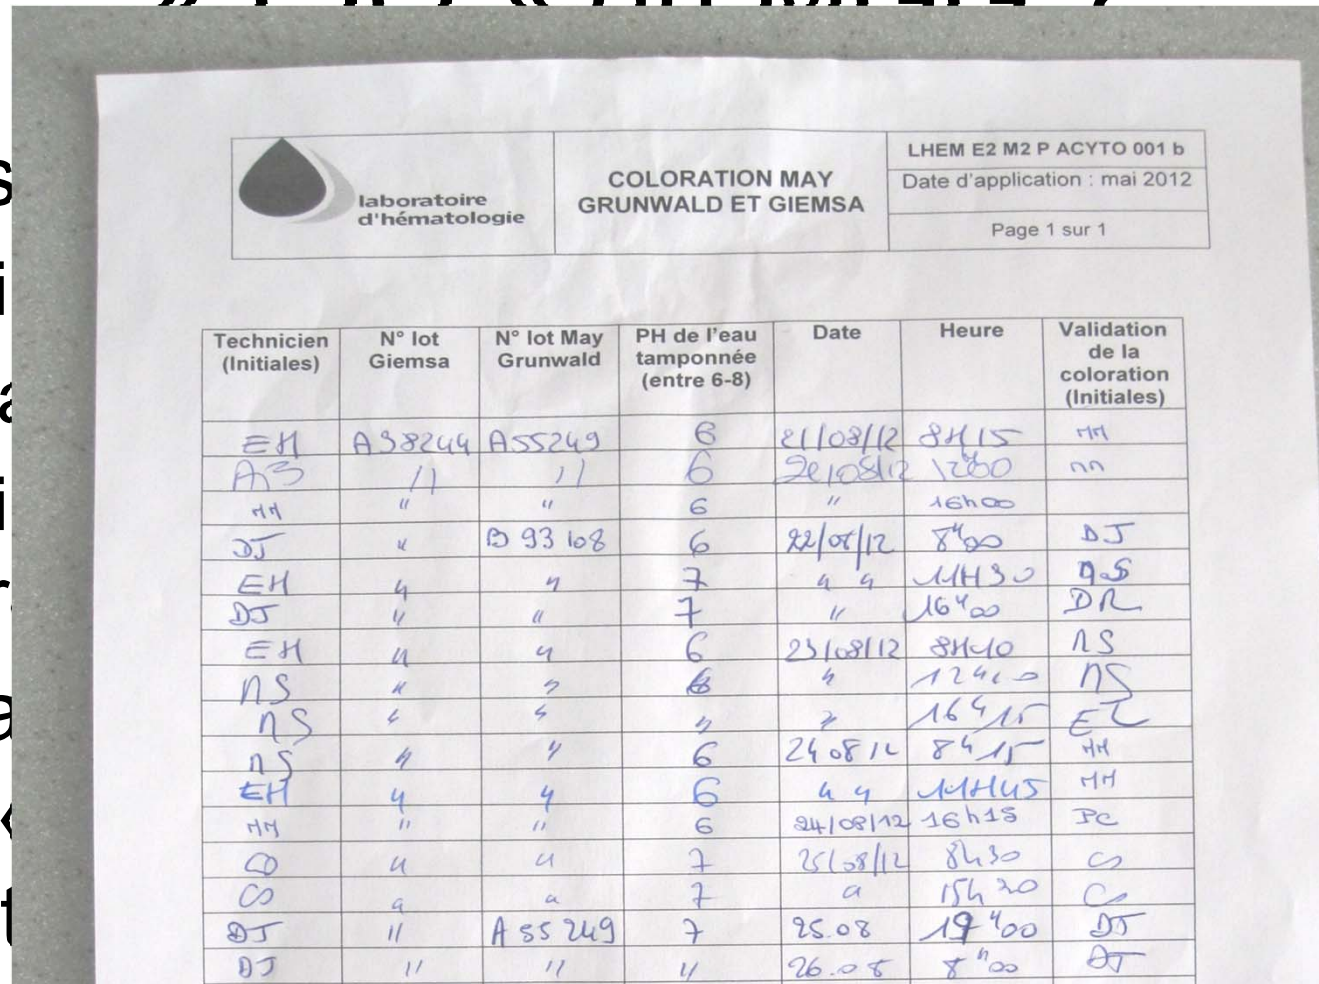 laboratoire
d'hématologie
COLORATION MAY
GRUNWALD ET GIEMSA
LHEM E2 M2 P ACYTO 001 b
Date d'application : mai 2012
Page 1 sur 1
Technicien (Initiales) N° lot Giemsa N° lot May Grunwald PH de l'eau tamponnée (entre 6-8) Date Heure Validation de la coloration (Initiales)
EH A38244 A55249 6 21/08/12 8H15 MM
" " 6 16h00
MM " " 6 " 16h00
DJ " B 93 108 6 22/08/12 8H00 DJ
EH " " 7 " " 11H30
DJ " " 7 " 16H00 DR
EH " " 6 23/08/12 8H10 NS
NS " " 6 " NS
NS " " " " 16H15
NS " " 6 24 08 12 8H15 MM
EH " " 6 " " 11H45 MM
MM " " 6 24/08/12 16h15 PC
" " 7 25/08/12 8h30 CS
CS " " 7 " 15h20 CS
DJ " A 55 249 7 25.08 19H00 DJ
DJ " " " 26.08 8H00 DJ